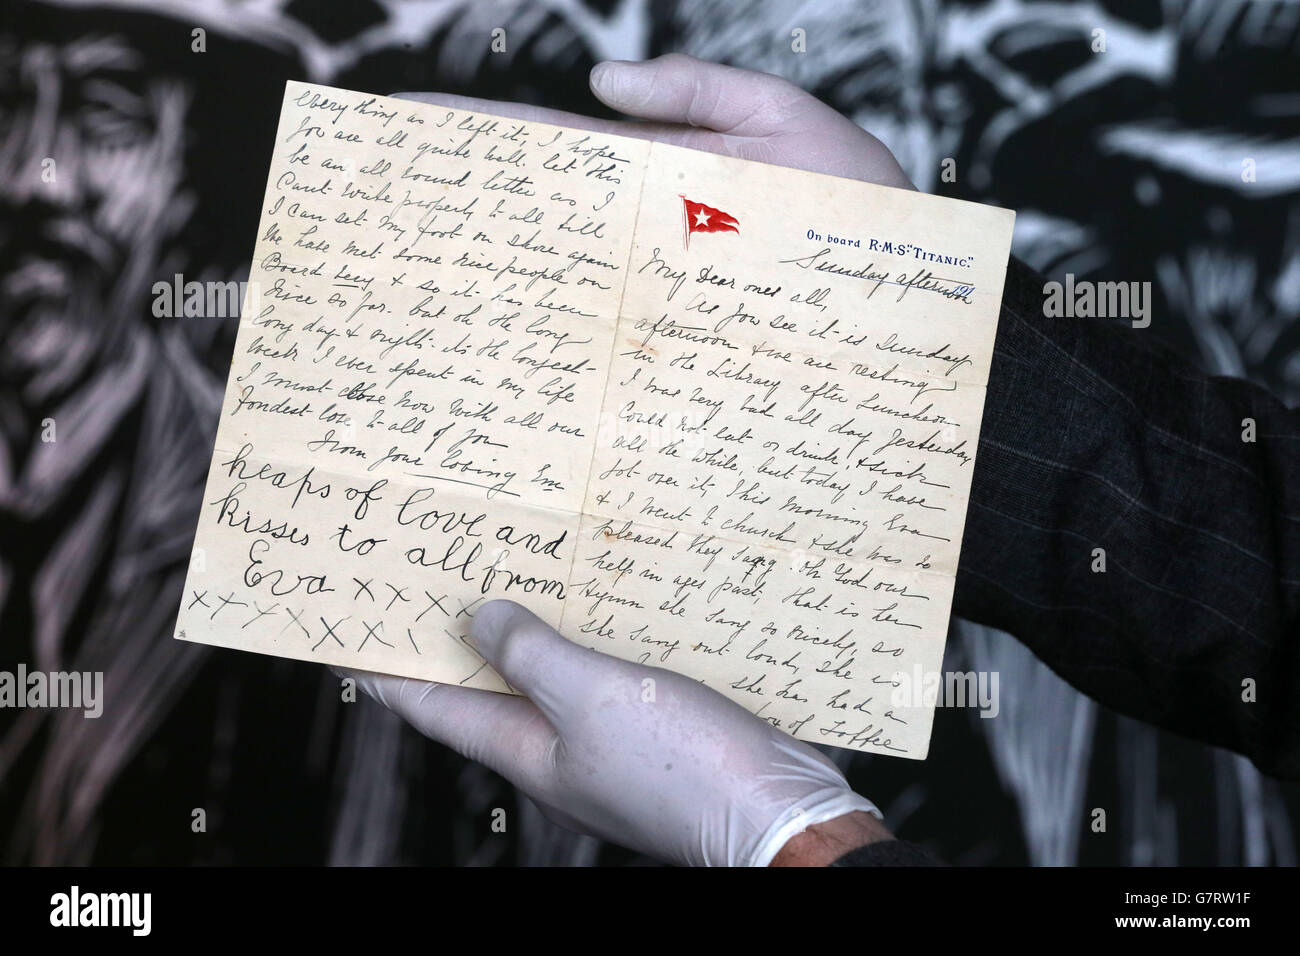 every thing as I left it, I hope
you are all quite well. let this
be an all round letter as I
Cant write properly to all till
I can set my foot on shore again
We have met some nice people on
Board and so it has been
Nice so far. but oh the long
long day & night its the longest
week I ever spent in my life
I must close now with all our
fondest love to all of you
From your loving Em
heaps of love and
kisses to all from
Eva x x x x
x x x x x x x
On board R.M.S. "TITANIC."
Sunday afternoon 191
My Dear ones all,
As you see it is Sunday
afternoon & we are resting
in the Library after Luncheon
I was very bad all day Yesterday
Could not eat or drink, & sick
all the while, but today I have
got over it, This morning Eva
& I went to church & she was so
pleased they sang Oh God our
help in ages past, that is her
Hymn she sang so Nicely, so
she sang out loud, she is
she has had a
box of Toffee
alamy
Image ID: G7RW1F
www.alamy.com